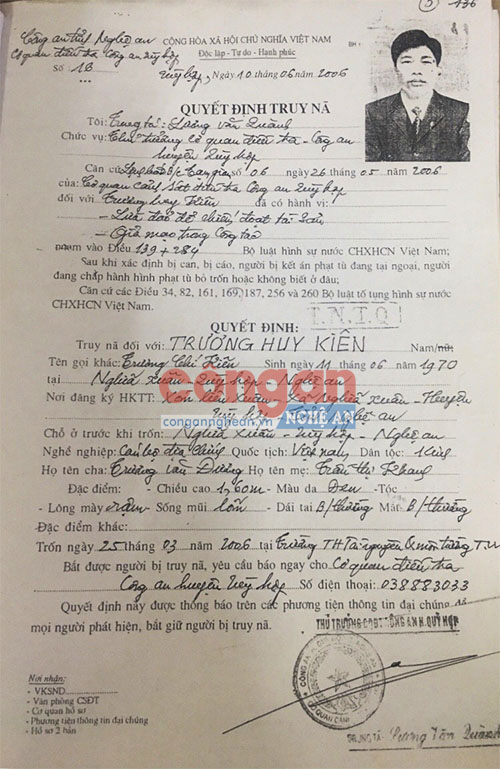 5 136
Công an tỉnh Nghệ an
Cơ quan điều tra Công an Quỳ hợp
Số 13
CỘNG HÒA XÃ HỘI CHỦ NGHĨA VIỆT NAM
Độc lập - Tự do - Hạnh phúc
BH
Quỳ hợp, Ngày 10 tháng 06 năm 2006
QUYẾT ĐỊNH TRUY NÃ
Tôi: Trung tá: Lương Văn Quành
Chức vụ: Thủ trưởng cơ quan điều tra - Công an
huyện Quỳ hợp
Căn cứ Lệnh bắt B/c tạm giam số 06 ngày 26 tháng 05 năm 2006
của: Cơ quan cảnh sát điều tra Công an Quỳ hợp
đối với Trương Huy Kiên đã có hành vi:
- Lừa đảo để chiếm đoạt tài sản
- Giả mạo trong Công tác
phạm vào Điều 139 + 284 Bộ luật hình sự nước CHXHCN Việt Nam;
Sau khi xác định bị can, bị cáo, người bị kết án phạt tù đang tại ngoại, người
đang chấp hành hình phạt tù bỏ trốn hoặc không biết ở đâu;
Căn cứ các Điều 34, 82, 161, 169, 187, 256 và 260 Bộ luật tố tụng hình sự nước
CHXHCN Việt Nam.
T.N.T.Q
QUYẾT ĐỊNH:
Truy nã đối với: TRƯƠNG HUY KIÊN Nam/nữ;
Tên gọi khác: Trương Chí Kiên Sinh ngày 11 tháng 06 năm 1970
tại Nghĩa Xuân - Quỳ hợp - Nghệ an
Nơi đăng ký HKTT: Xóm Xuân Xã Nghĩa Xuân - Huyện
Quỳ hợp - Tỉnh Nghệ an
côngan
congannghean.vn - NGHỆ AN
Chỗ ở trước khi trốn: Nghĩa Xuân - Quỳ hợp - Nghệ an
Nghề nghiệp: Cán bộ địa chính Quốc tịch: Việt nam Dân tộc: Kinh
Họ tên cha: Trương Văn Dương Họ tên mẹ: Trần Thị Khang
Đặc điểm: - Chiều cao 1,60m - Màu da Đen - Tóc
- Lông mày rậm - Sống mũi lõm - Dái tai B/thường Mắt B/thường
Đặc điểm khác:
Trốn ngày 25 tháng 03 năm 2006 tại Trường TH Tài nguyên & môi trường T.W
Bắt được người bị truy nã, yêu cầu báo ngay cho Cơ quan điều tra
Công an huyện Quỳ hợp Số điện thoại: 038883033
Quyết định này được thông báo trên các phương tiện thông tin đại chúng để
mọi người phát hiện, bắt giữ người bị truy nã.
THỦ TRƯỞNG CQĐT CÔNG AN H. QUỲ HỢP
Nơi nhận:
- VKSND
- Văn phòng CSĐT
- Cơ quan hồ sơ
- Phương tiện thông tin đại chúng
- Hồ sơ 2 bản
CƠ QUAN CẢNH
TRUNG TÁ Lương Văn Quành